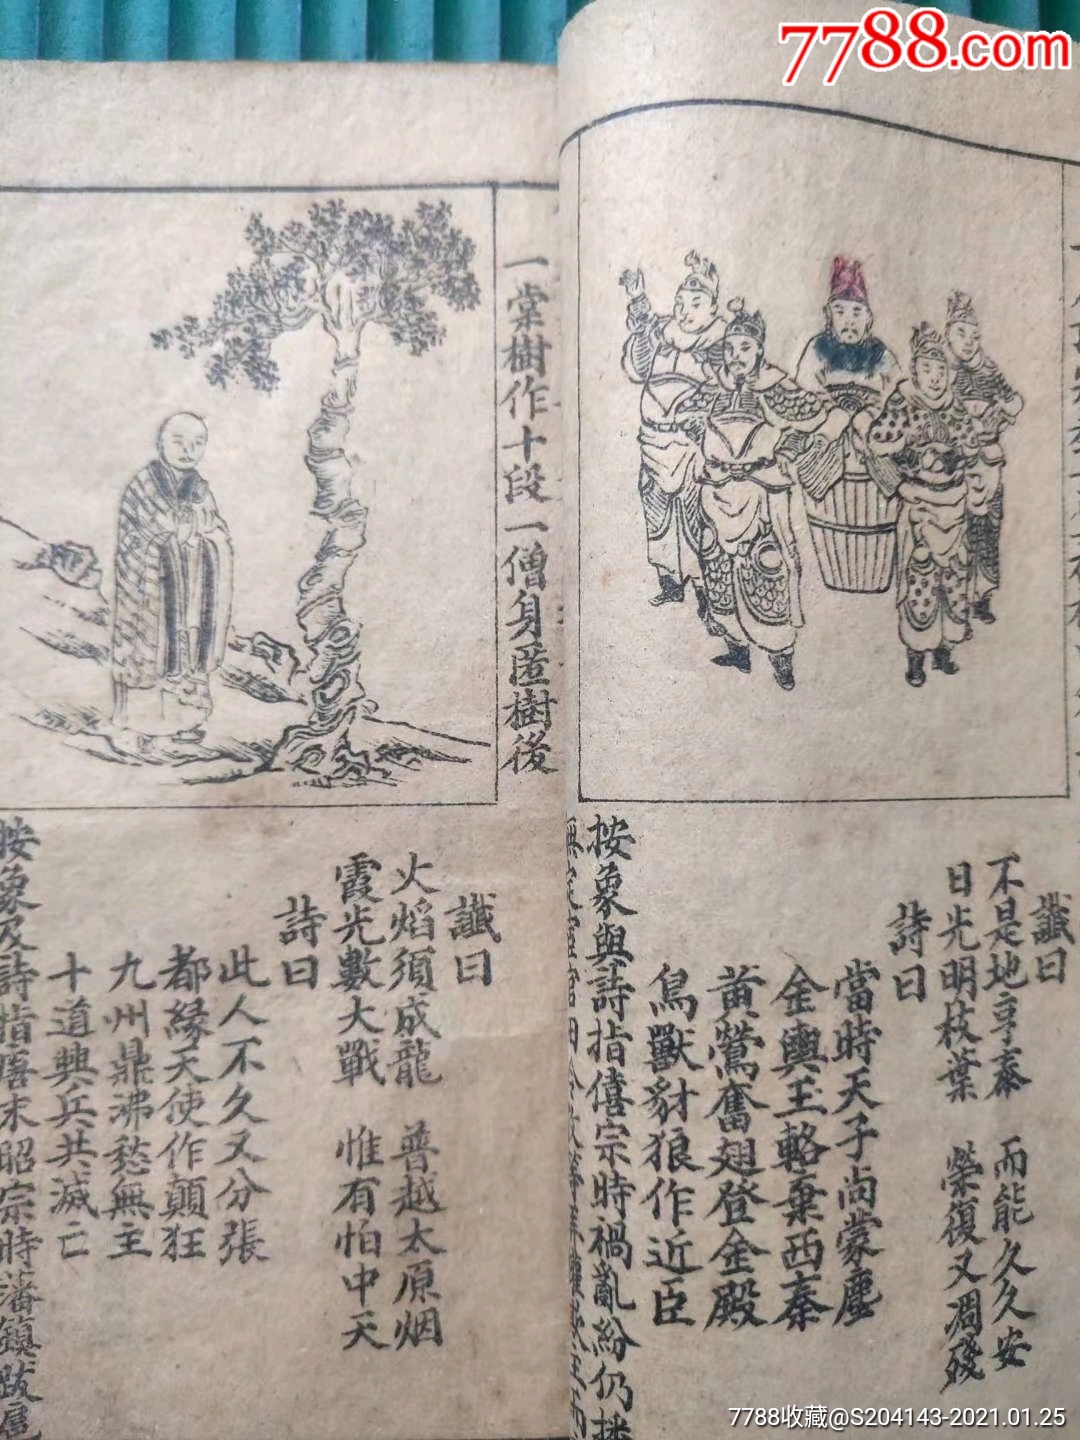 7788.com
讖曰
不是地亨泰 而能久久安
日光明枝葉 榮復又凋殘
詩曰
當時天子尚蒙塵
金輿玉輅棄西秦
黃鶯奮翅登金殿
鳥獸豺狼作近臣
按象與詩指僖宗時禍亂紛仍
一棠樹作十段一僧身匿樹後
讖曰
火焰須成龍 普越太原烟
霞光數大戰 惟有怕中天
詩曰
此人不久又分張
都緣天使作顛狂
九州鼎沸愁無主
十道興兵共滅亡
按象及詩指唐末昭宗時藩鎮跋扈
7788收藏@S204143-2021.01.25